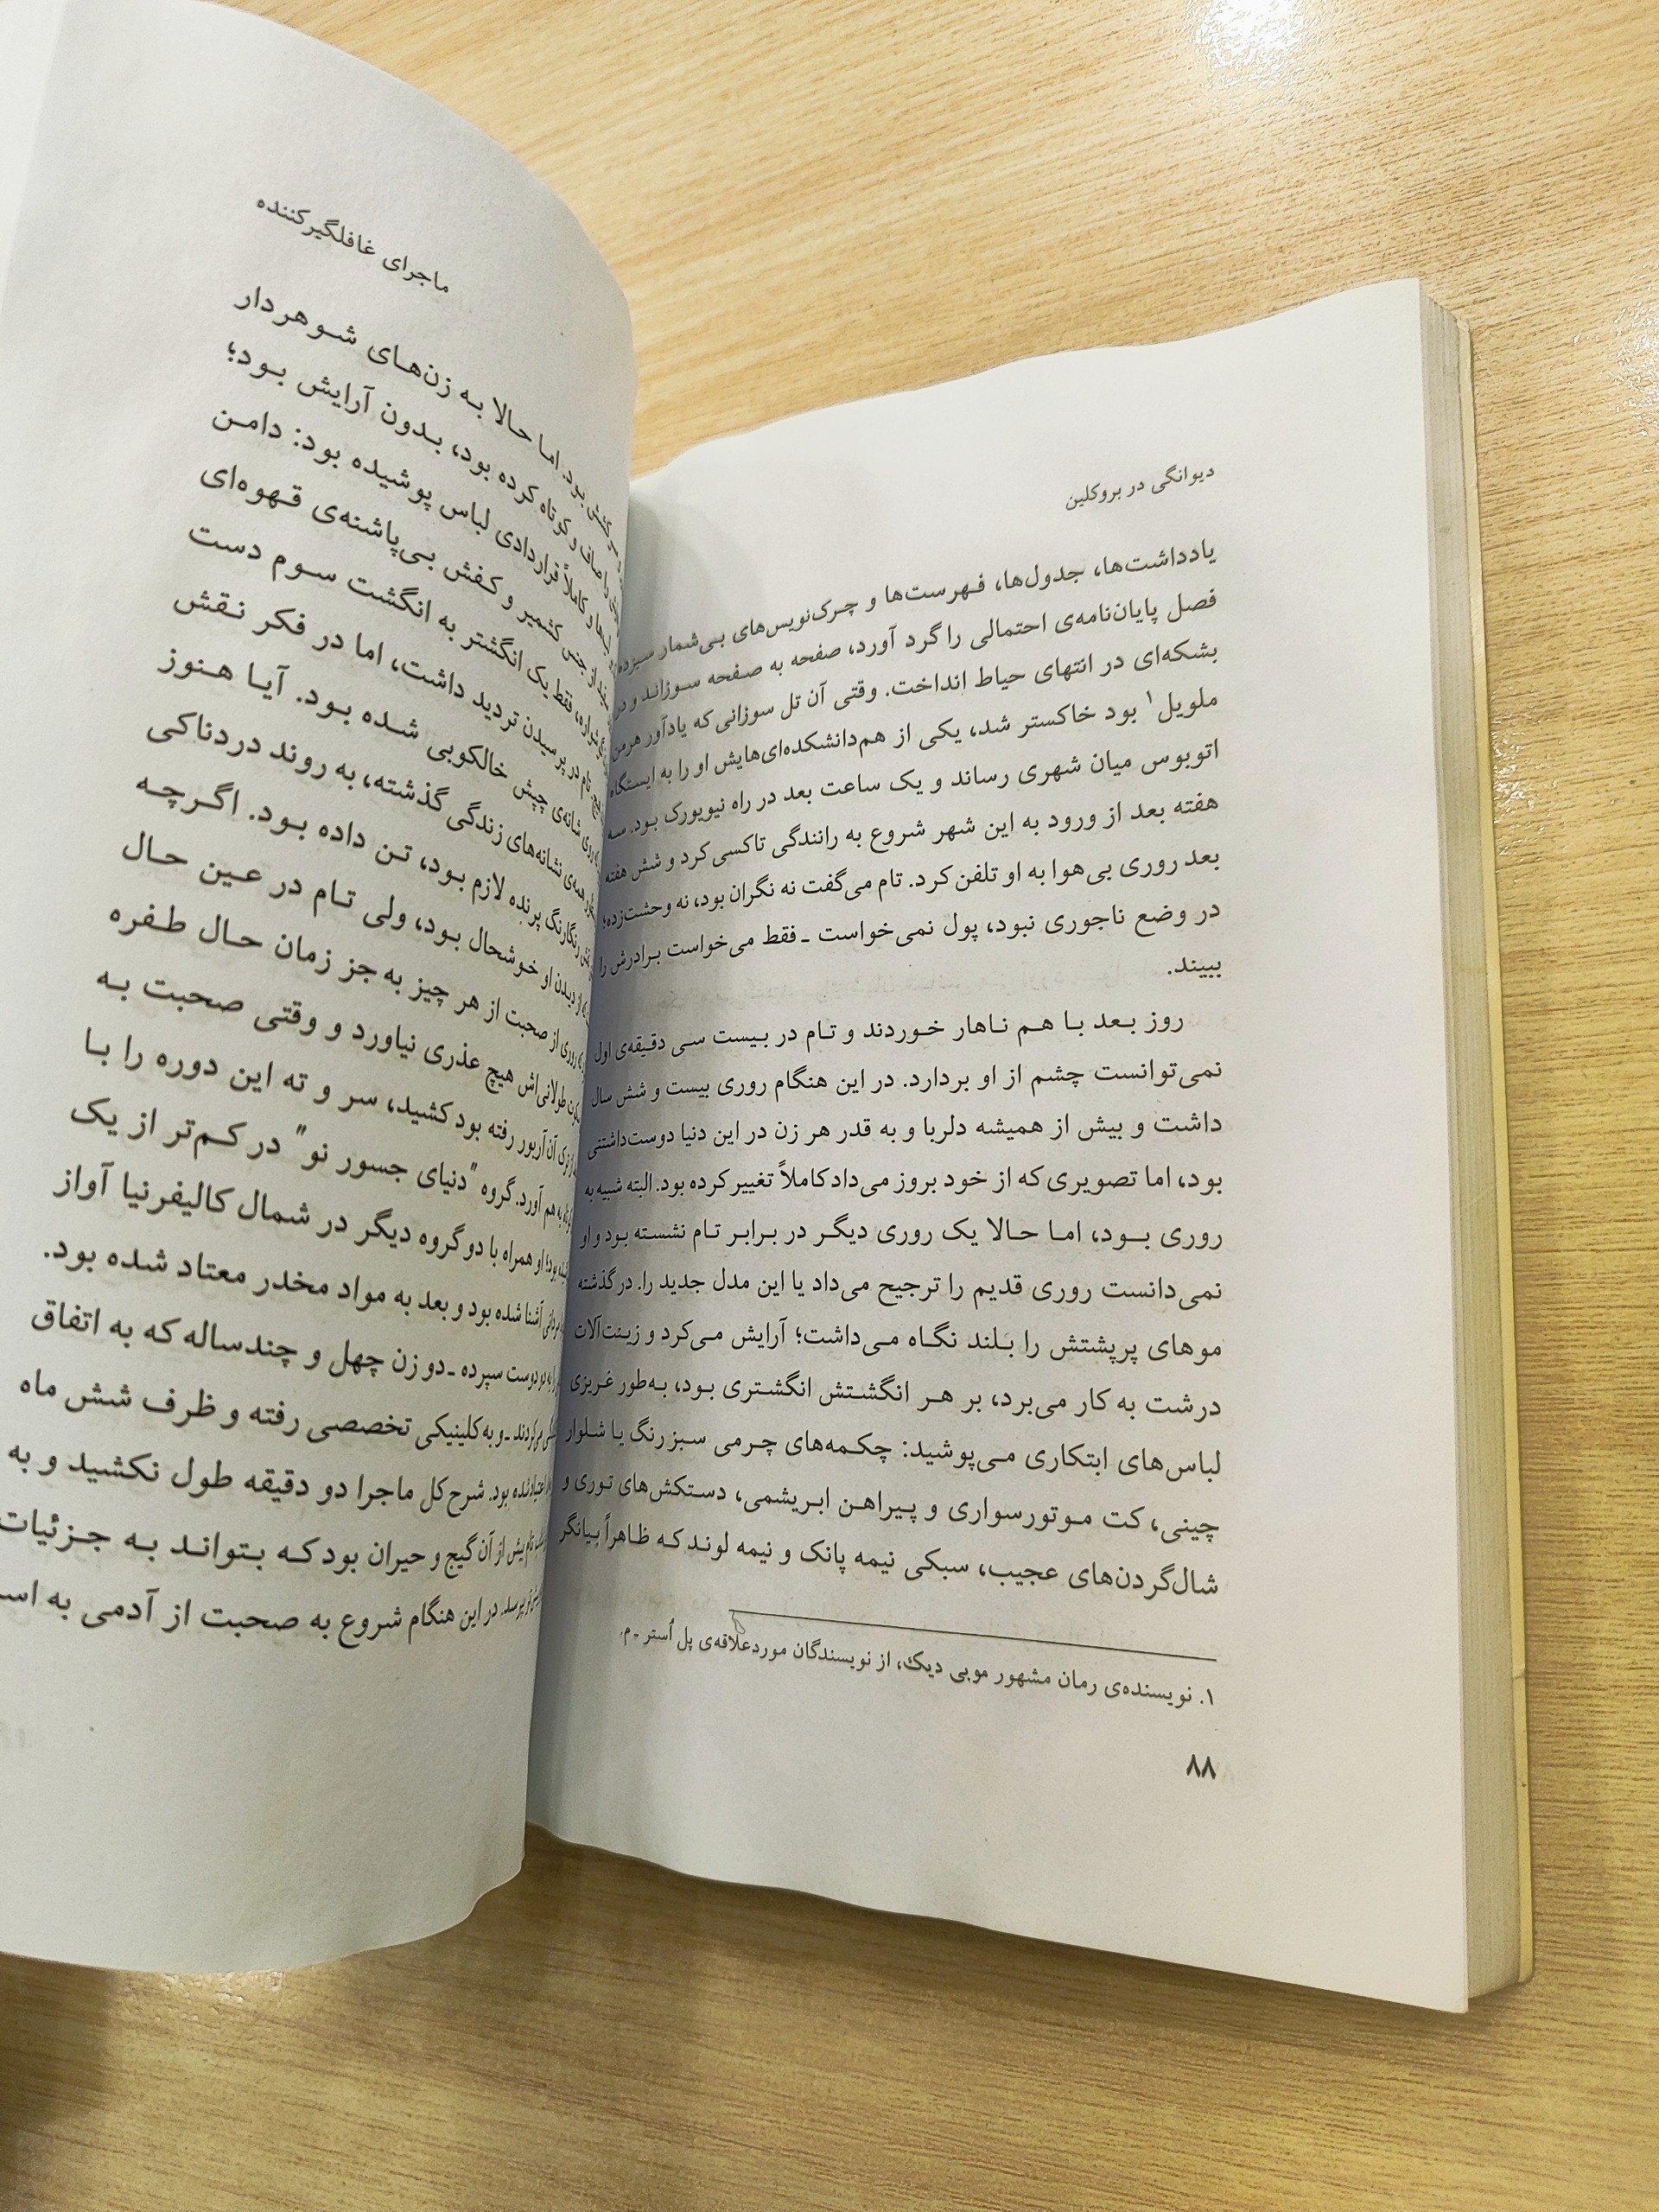 دیوانگی در بروکلین
یادداشت‌ها، جدول‌ها، فهرست‌ها و چرک‌نویس‌های بی‌شمار سیزده
فصل پایان‌نامه‌ی احتمالی را گرد آورد، صفحه به صفحه سوزاند و در
بشکه‌ای در انتهای حیاط انداخت. وقتی آن تل سوزانی که یادآور هرمن
ملویل۱ بود خاکستر شد، یکی از هم‌دانشکده‌ای‌هایش او را به ایستگاه
اتوبوس میان شهری رساند و یک ساعت بعد در راه نیویورک بود. سه
هفته بعد از ورود به این شهر شروع به رانندگی تاکسی کرد و شش هفته
بعد روری بی‌هوا به او تلفن کرد. تام می‌گفت نه نگران بود، نه وحشت‌زده؛
در وضع ناجوری نبود، پول نمی‌خواست ـ فقط می‌خواست برادرش را
ببیند.
روز بعد با هم ناهار خوردند و تام در بیست سی دقیقه‌ی اول
نمی‌توانست چشم از او بردارد. در این هنگام روری بیست و شش سال
داشت و بیش از همیشه دلربا و به قدر هر زن در این دنیا دوست‌داشتنی
بود، اما تصویری که از خود بروز می‌داد کاملاً تغییر کرده بود. البته شبیه به
روری بود، اما حالا یک روری دیگر در برابر تام نشسته بود و او
نمی‌دانست روری قدیم را ترجیح می‌داد یا این مدل جدید را. در گذشته
موهای پرپشتش را بلند نگاه می‌داشت؛ آرایش می‌کرد و زینت‌آلات
درشت به کار می‌برد، بر هر انگشتش انگشتری بود، به‌طور غریزی
لباس‌های ابتکاری می‌پوشید: چکمه‌های چرمی سبز رنگ یا شلوار
چینی، کت موتورسواری و پیراهن ابریشمی، دستکش‌های توری و
شال‌گردن‌های عجیب، سبکی نیمه پانک و نیمه لوند که ظاهراً بیانگر
۱. نویسنده‌ی رمان مشهور موبی دیک، از نویسندگان موردعلاقه‌ی پل اُستر ـ م.
۸۸
ماجرای غافلگیرکننده
بود. اما حالا به زن‌های شوهردار
را صاف و کوتاه کرده بود، بدون آرایش بود؛
و کاملاً قراردادی لباس پوشیده بود: دامن
از جنس کشمیر و کفش بی‌پاشنه‌ی قهوه‌ای
فقط یک انگشتر به انگشت سوم دست
تام در پرسیدن تردید داشت، اما در فکر نقش
روی شانه‌ی چپش خالکوبی شده بود. آیا هنوز
همه‌ی نشانه‌های زندگی گذشته، به روند دردناکی
رنگارنگ پرنده لازم بود، تن داده بود. اگرچه
از دیدن او خوشحال بود، ولی تام در عین حال
روری از صحبت از هر چیز به جز زمان حال طفره
طولانی‌اش هیچ عذری نیاورد و وقتی صحبت به
آن آربور رفته بود کشید، سر و ته این دوره را با
به هم آورد. گروه "دنیای جسور نو" در کم‌تر از یک
بود؛ او همراه با دو گروه دیگر در شمال کالیفرنیا آواز
آشنا شده بود و بعد به مواد مخدر معتاد شده بود.
را به دو دوست سپرده ـ دو زن چهل و چندساله که به اتفاق
می‌کردند ـ و به کلینیکی تخصصی رفته و ظرف شش ماه
شده بود. شرح کل ماجرا دو دقیقه طول نکشید و به
تام بیش از آن گیج و حیران بود که بتواند به جزئیات
بپرسد. در این هنگام شروع به صحبت از آدمی به